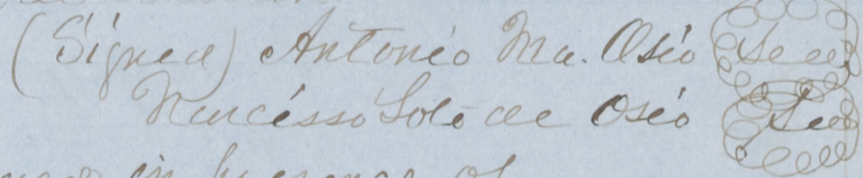 (Signed) Antonio Ma. Osio Seal
Narcisso Soto de Osio Seal
in presence of